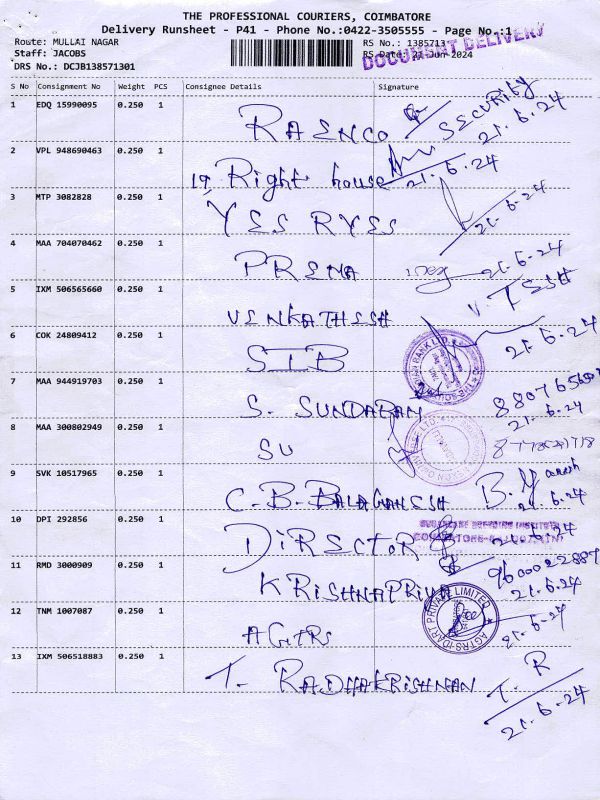 THE PROFESSIONAL COURIERS, COIMBATORE
Delivery Runsheet - P41 - Phone No.:0422-3505555 - Page No.:1
Route: MULLAI NAGAR
RS No.: 1385713
Staff: JACOBS
RS Date: 21 Jun 2024
DOCUMENT DELIVERY
DRS No.: DCJB138571301
S No Consignment No Weight PCS Consignee Details Signature
1 EDQ 15990095 0.250 1 RAENCO SECURITY 21.6.24
2 VPL 948690463 0.250 1 19 Right house 21.6.24
3 MTP 3082828 0.250 1 YES RYES 21.6.24
4 MAA 704070462 0.250 1 PREMA 21-6-24
5 IXM 506565660 0.250 1 VENKATHESH V. TESH 21.6.24
6 COK 24809412 0.250 1 SIB
7 MAA 944919703 0.250 1 S. SUNDARAN 21.6.24
8 MAA 300802949 0.250 1 SU
9 SVK 10517965 0.250 1 C.B. BALAGANESH B. Ganesh 21.6.24
10 DPI 292856 0.250 1 DIRECTOR 21.6.24
11 RMD 3000909 0.250 1 KRISHNAPRIYA 9600022889 21.6.24
12 TNM 1007087 0.250 1 AGTRS AGTRS IDART PRIVATE LIMITED 21-6-24
13 IXM 506518883 0.250 1 T. RADHAKRISHNAN T. R 21.6.24